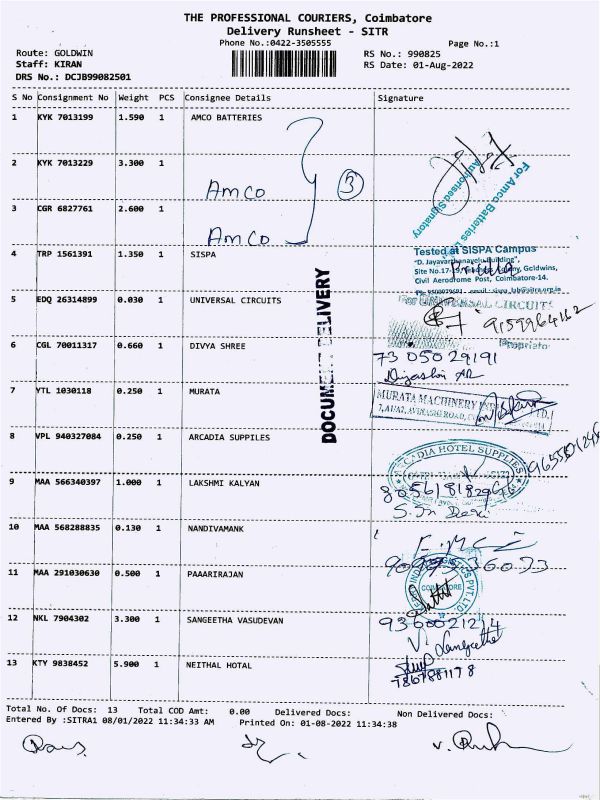 THE PROFESSIONAL COURIERS, Coimbatore
Delivery Runsheet - SITR
Phone No.:0422-3505555
Page No.:1
Route: GOLDWIN
Staff: KIRAN
DRS No.: DCJB99082501
RS No.: 990825
RS Date: 01-Aug-2022
S No Consignment No Weight PCS Consignee Details Signature
1 KYK 7013199 1.590 1 AMCO BATTERIES
2 KYK 7013229 3.300 1 Amco
3
For Amco Batteries
Authorised Signatory
3 CGR 6827761 2.600 1 Amco
4 TRP 1561391 1.350 1 SISPA
Tested at SISPA Campus
"D. Jayavarthanavelu Building",
Site No.17-19, Colony, Goldwins,
Civil Aerodrome Post, Coimbatore-14.
5 EDQ 26314899 0.030 1 UNIVERSAL CIRCUITS
UNIVERSAL CIRCUITS
9159964162
Proprietor
DOCUMENT DELIVERY
6 CGL 70011317 0.660 1 DIVYA SHREE
73 050 29191
7 YTL 1030118 0.250 1 MURATA
MURATA MACHINERY
AVINASHI ROAD,
8 VPL 940327084 0.250 1 ARCADIA SUPPILES
ARCADIA HOTEL SUPPLIES
9 MAA 566340397 1.000 1 LAKSHMI KALYAN
10 MAA 568288835 0.130 1 NANDIVAMANK
11 MAA 291030630 0.500 1 PAAARIRAJAN
COIMBATORE
PVT. LTD
12 NKL 7904302 3.300 1 SANGEETHA VASUDEVAN
9360021214
V. Sangeetha
13 KTY 9838452 5.900 1 NEITHAL HOTAL
7867881178
Total No. Of Docs: 13 Total COD Amt: 0.00 Delivered Docs: Non Delivered Docs:
Entered By :SITRA1 08/01/2022 11:34:33 AM Printed On: 01-08-2022 11:34:38